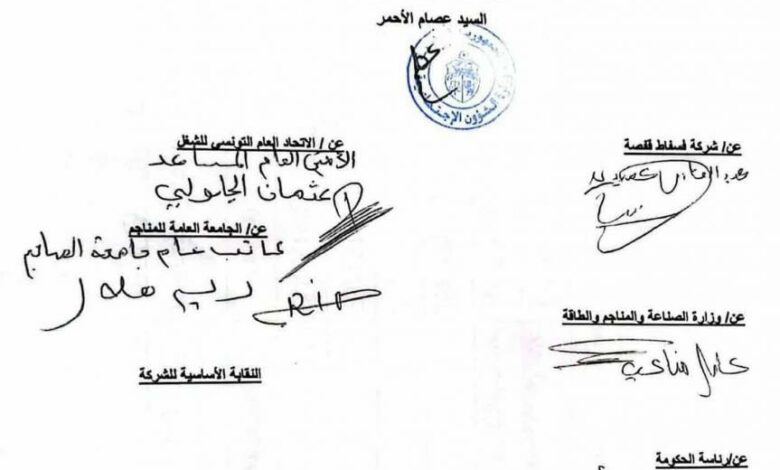 السيد عصام الأحمر
وزارة الشؤون الإجتماعية
عن/ شركة فسفاط قفصة
عن / الاتحاد العام التونسي للشغل
الأمين العام المساعد
عثمان الجلولي
عن/ الجامعة العامة للمناجم
كاتب عام جامعة المناجم
ريم هلال
عن/ وزارة الصناعة والمناجم والطاقة
عادل
النقابة الأساسية للشركة
عن/رئاسة الحكومة